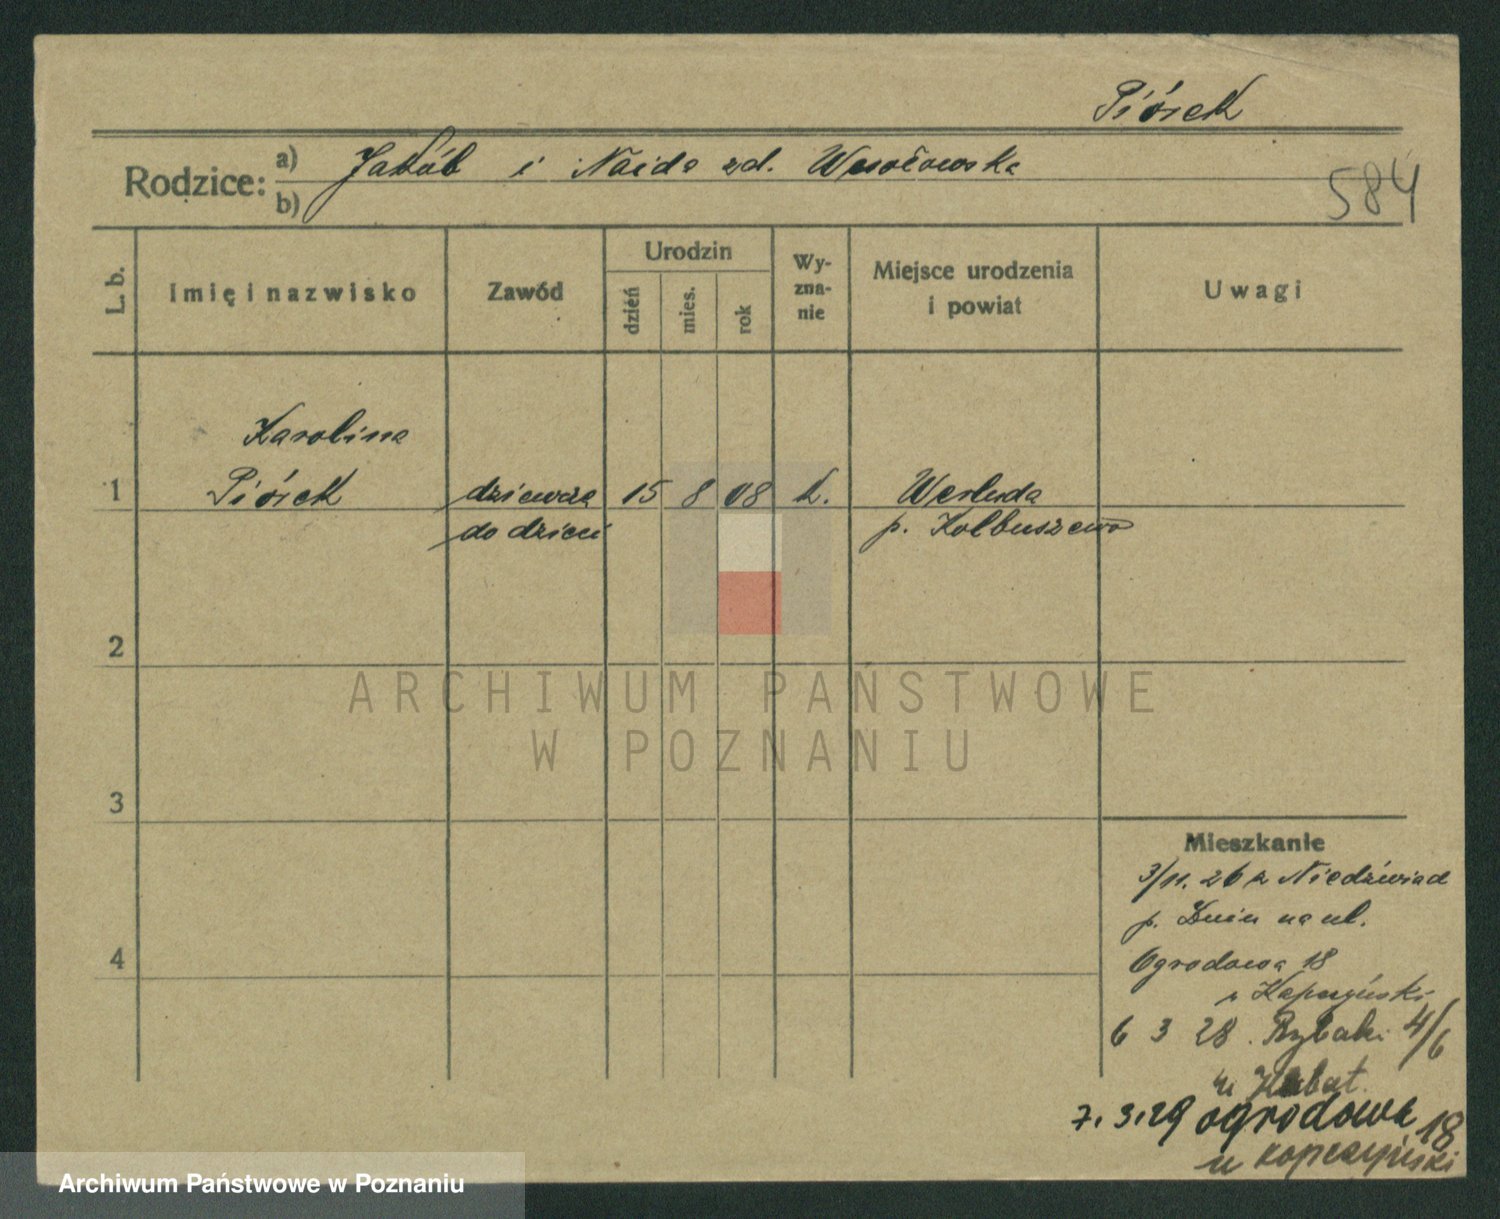 Piórek
Rodzice:
a) Jakób i Naida zd. Wesołowska
b)
584
L. b.
Imię i nazwisko
Zawód
Urodzin
dzień
mies.
rok
Wy-
zna-
nie
Miejsce urodzenia
i powiat
Uwagi
Karolina
1 Piórek dziewczę 15 8 08 k.
do dzieci p. Kolbuszewo
2
ARCHIWUM PAŃSTWOWE
W POZNANIU
3
Mieszkanie
3/11. 26 z Niedźwiad
p. Żnin na ul.
4
Ogrodowa 18
6 3 28. Rybaki 4/6
7. 3. 29 ogrodowa 18
u kopczyński
Archiwum Państwowe w Poznaniu